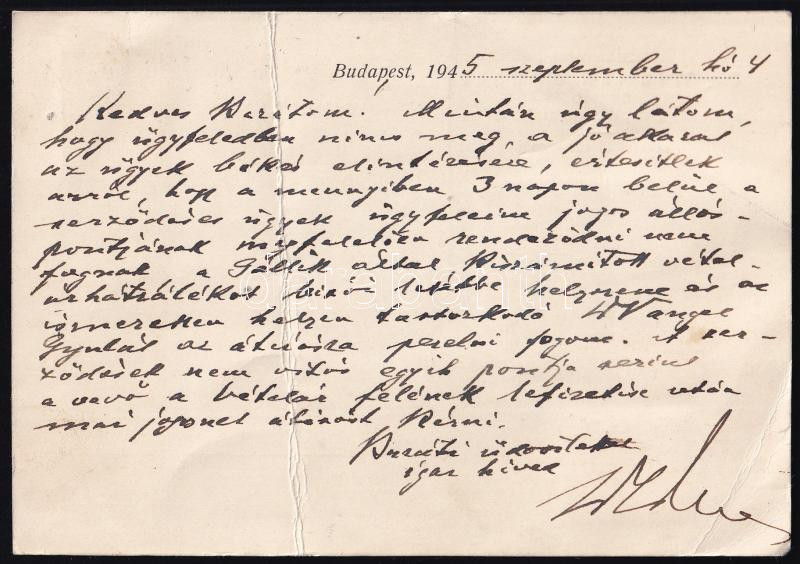 Budapest, 1945 szeptember hó 4
Kedves Barátom! Miután úgy látom,
hogy ügyfeledben nincs meg a jó akarat
az ügyek békés elintézésére, értesitlek
arról, hogy a mennyiben 3 napon belül a
szerződéses ügyek ügyfeleim jogos állás-
pontjának megfelelően rendeződni nem
fognak a Gállik által kiszámitott vétel-
árhátralékot birói letétbe helyezem és az
ismeretlen helyen tartozkodó Wangel
Gyulát az átirásra perelni fogom. A szer-
ződések nem vitás egyik pontja szerint
a vevő a vételár felének lefizetése után
már jogosult átirást kérni.
Baráti üdvözlettel
igaz hived